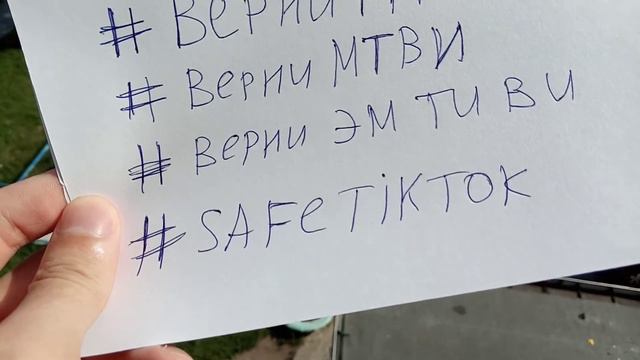 # ВЕРНИ
# ВЕРНИ МТВИ
# ВЕРНИ ЭМ ТИ ВИ
#SAFETIKTOK